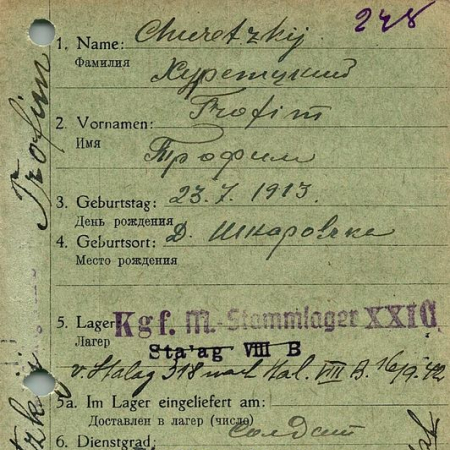 248
1. Name: Churetzkij
Фамилия Хуретцкий
Trofim
2. Vornamen:
Имя Трофим
3. Geburtstag: 23.7.1913.
День рождения
4. Geburtsort: Д. Шкаровка
Место рождения
5. Lager Kgf. M.-Stammlager XXIC
Лагер Sta'ag VIII B
v. Stalag 318 nach Stal. VIII B. 16/9.42
5a. Im Lager eingeliefert am:
Доставлен в лагер (число)
6. Dienstgrad: солдат
Trofim